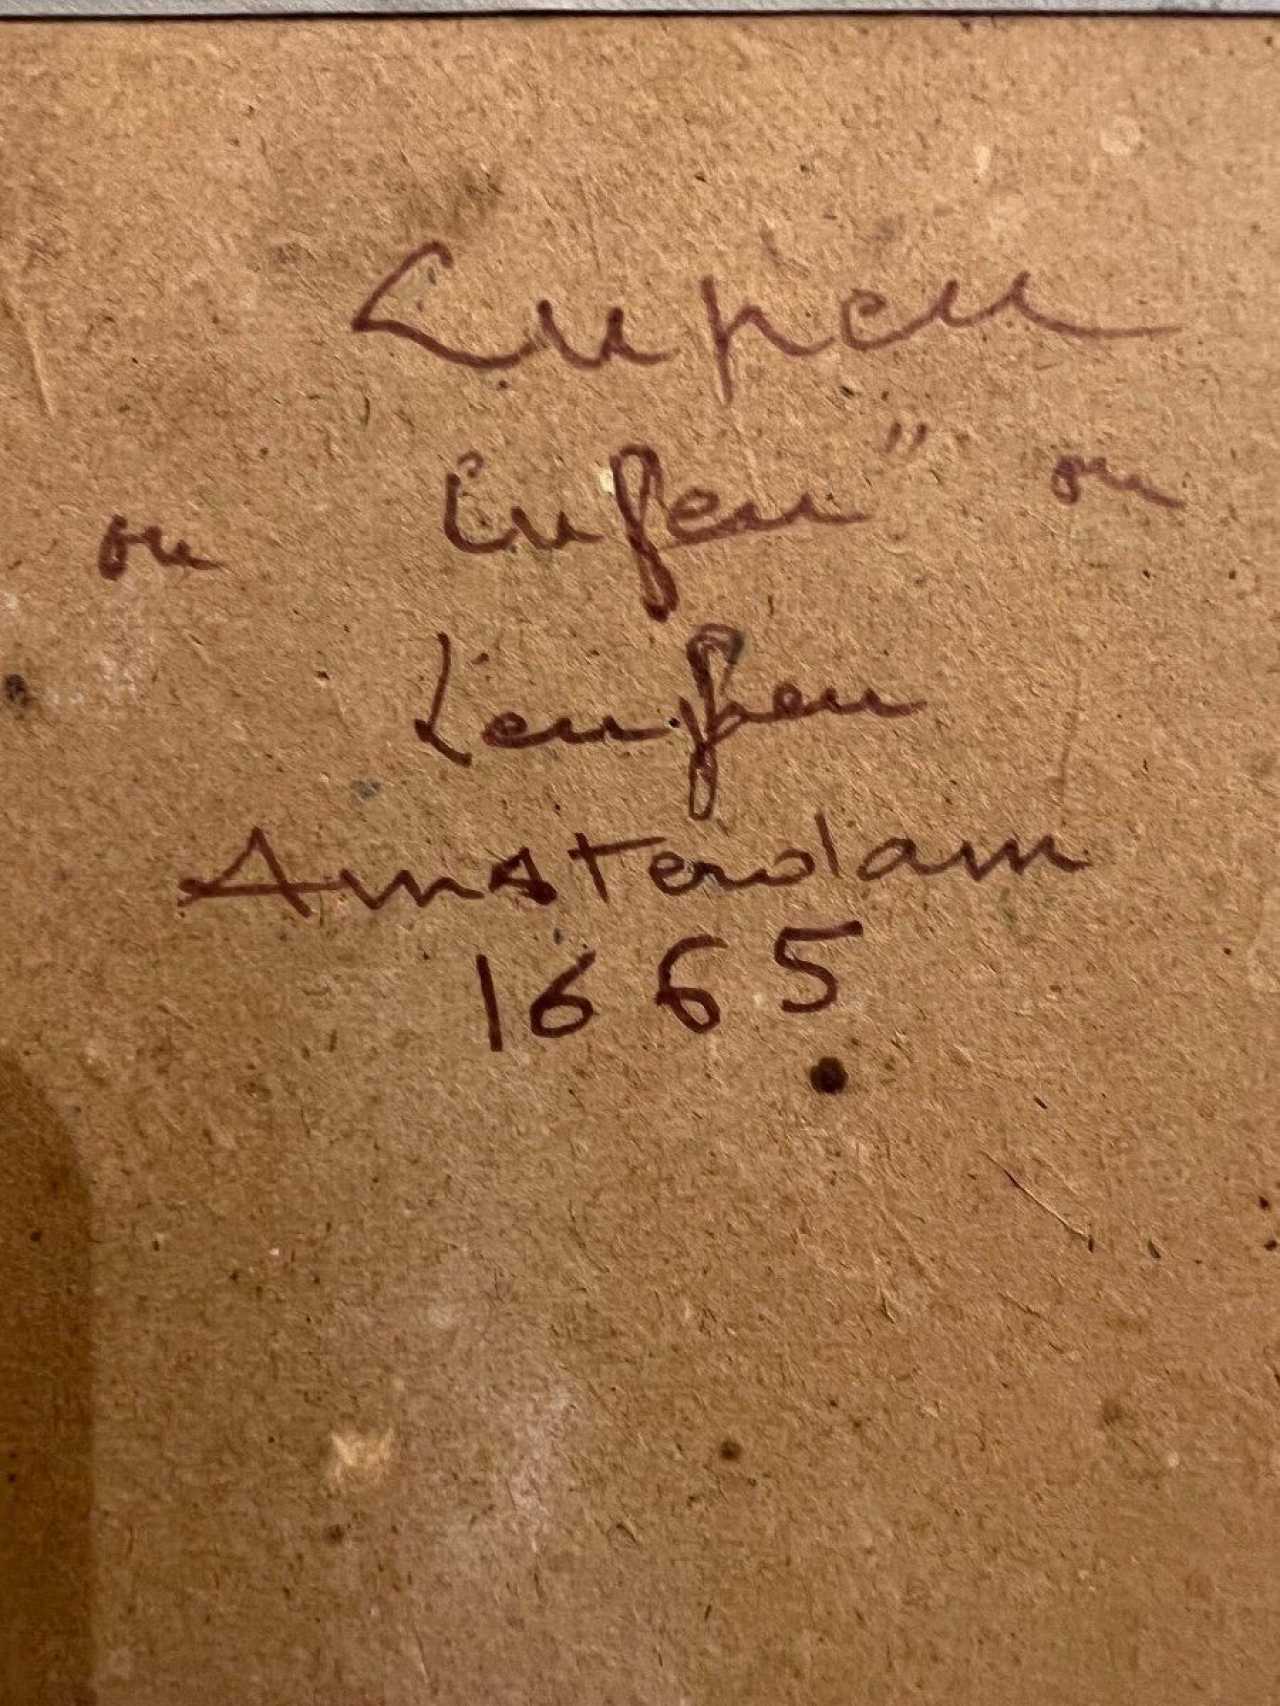 Lupen
ou Lufen" ou
Leufen
Amsterdam
1665